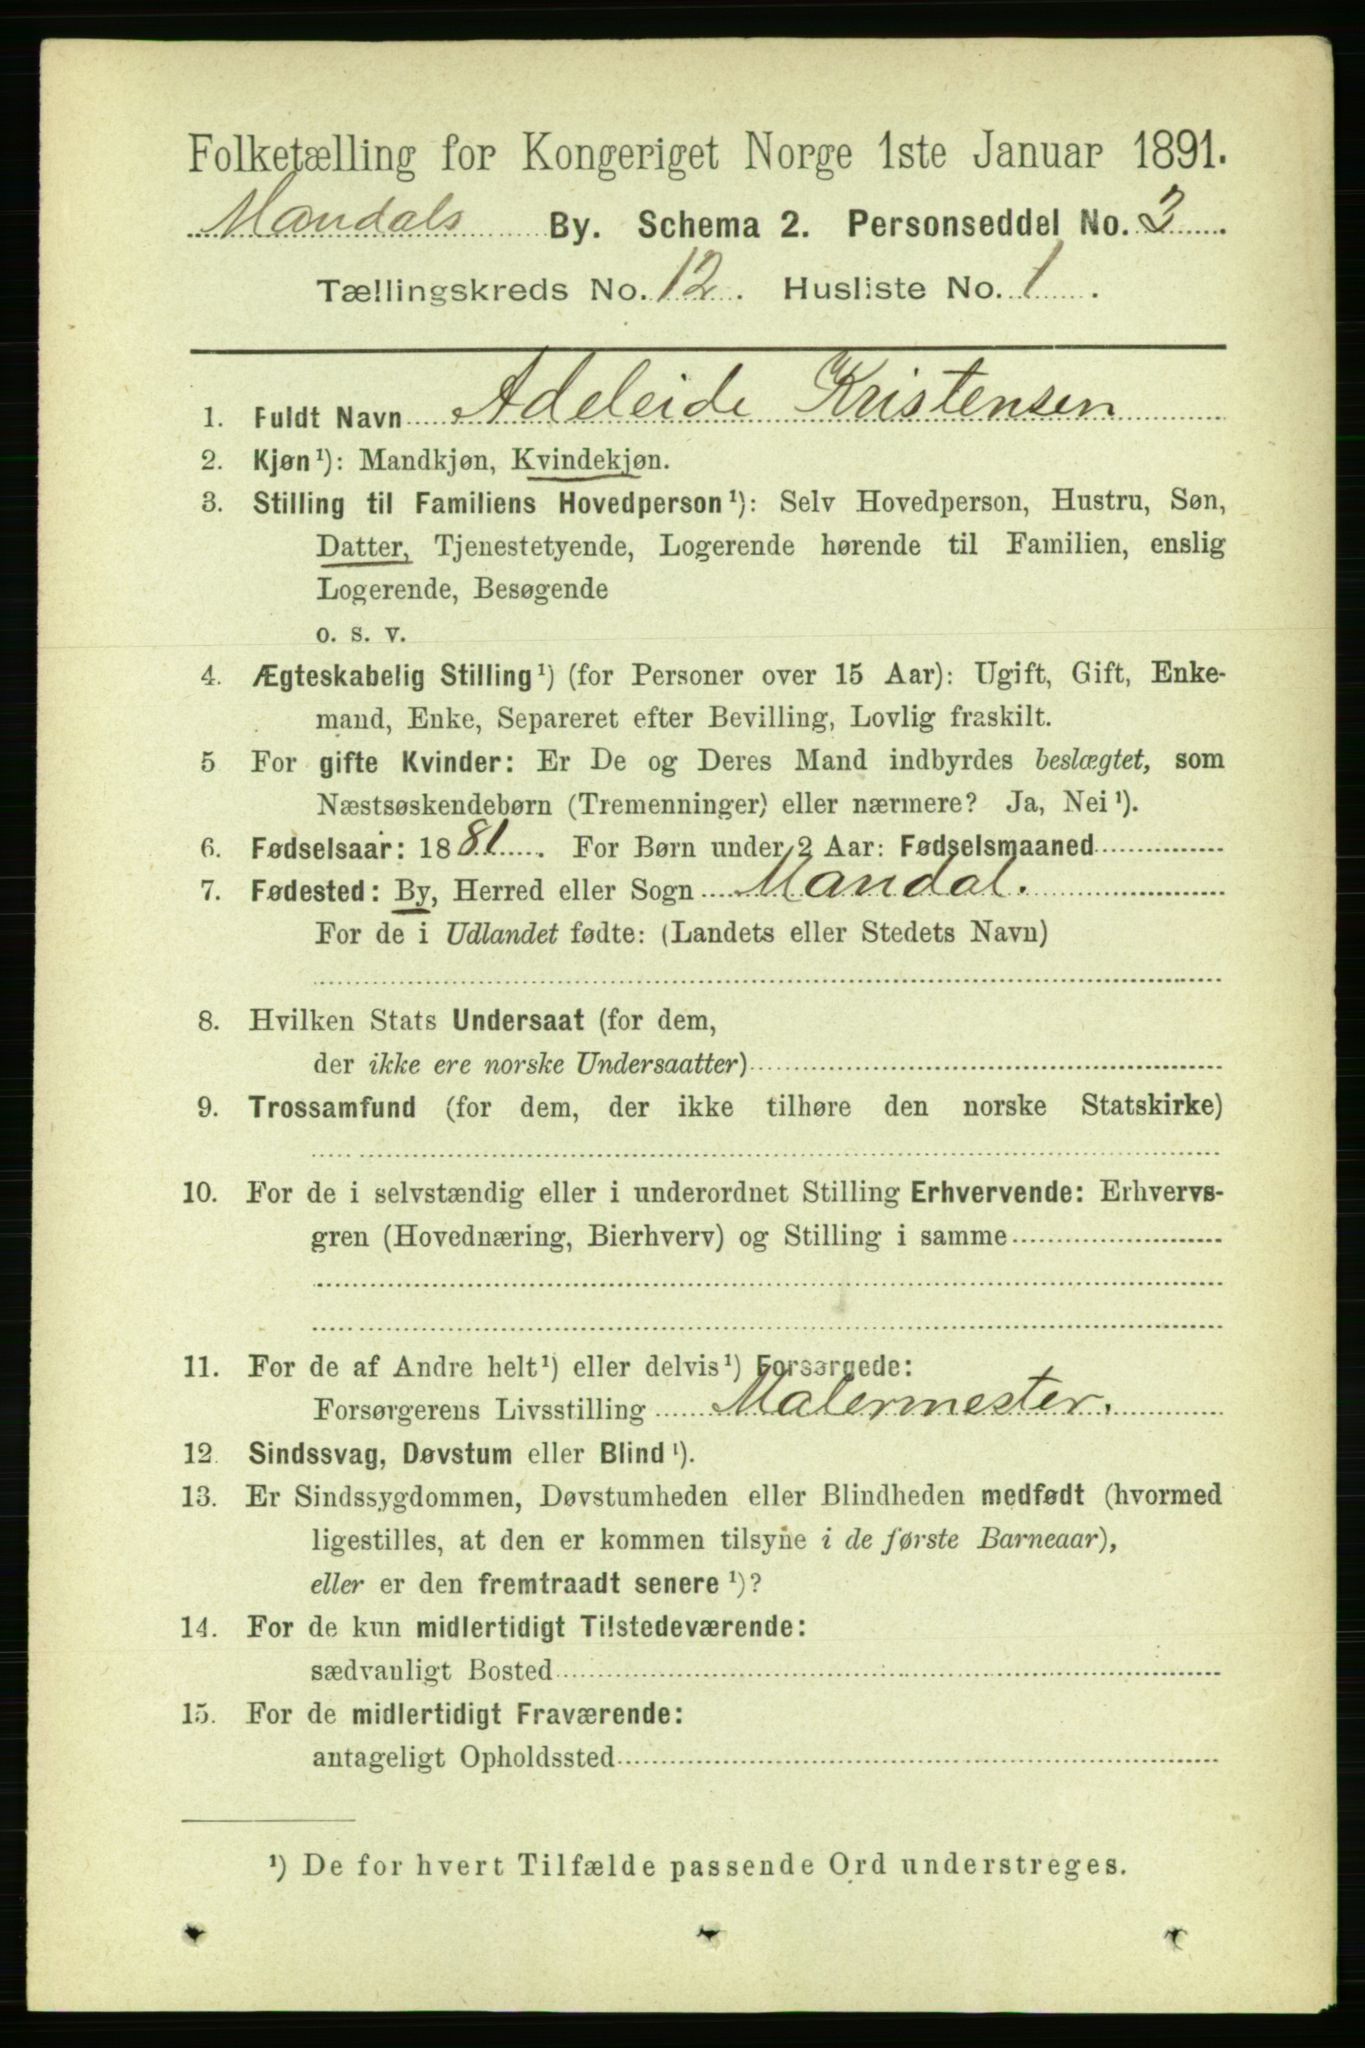 Folketælling for Kongeriget Norge 1ste Januar 1891.
Mandals By. Schema 2. Personseddel No. 3.
Tællingskreds No. 12. Husliste No. 1.
1. Fuldt Navn Adeleide Kristensen
2. Kjøn¹): Mandkjøn, Kvindekjøn.
3. Stilling til Familiens Hovedperson¹): Selv Hovedperson, Hustru, Søn,
Datter, Tjenestetyende, Logerende hørende til Familien, enslig
Logerende, Besøgende
o. s. v.
4. Ægteskabelig Stilling¹) (for Personer over 15 Aar): Ugift, Gift, Enke-
mand, Enke, Separeret efter Bevilling, Lovlig fraskilt.
5 For gifte Kvinder: Er De og Deres Mand indbyrdes beslægtet, som
Næstsøskendebørn (Tremenninger) eller nærmere? Ja, Nei¹).
6. Fødselsaar: 1881. For Børn under 2 Aar: Fødselsmaaned
7. Fødested: By, Herred eller Sogn Mandal.
For de i Udlandet fødte: (Landets eller Stedets Navn)
8. Hvilken Stats Undersaat (for dem,
der ikke ere norske Undersaatter)
9. Trossamfund (for dem, der ikke tilhøre den norske Statskirke)
10. For de i selvstændig eller i underordnet Stilling Erhvervende: Erhvervs-
gren (Hovednæring, Bierhverv) og Stilling i samme
11. For de af Andre helt¹) eller delvis¹) Forsørgede:
Forsørgerens Livsstilling Malermester.
12. Sindssvag, Døvstum eller Blind¹).
13. Er Sindssygdommen, Døvstumheden eller Blindheden medfødt (hvormed
ligestilles, at den er kommen tilsyne i de første Barneaar),
eller er den fremtraadt senere¹)?
14. For de kun midlertidigt Tilstedeværende:
sædvanligt Bosted
15. For de midlertidigt Fraværende:
antageligt Opholdssted
¹) De for hvert Tilfælde passende Ord understreges.